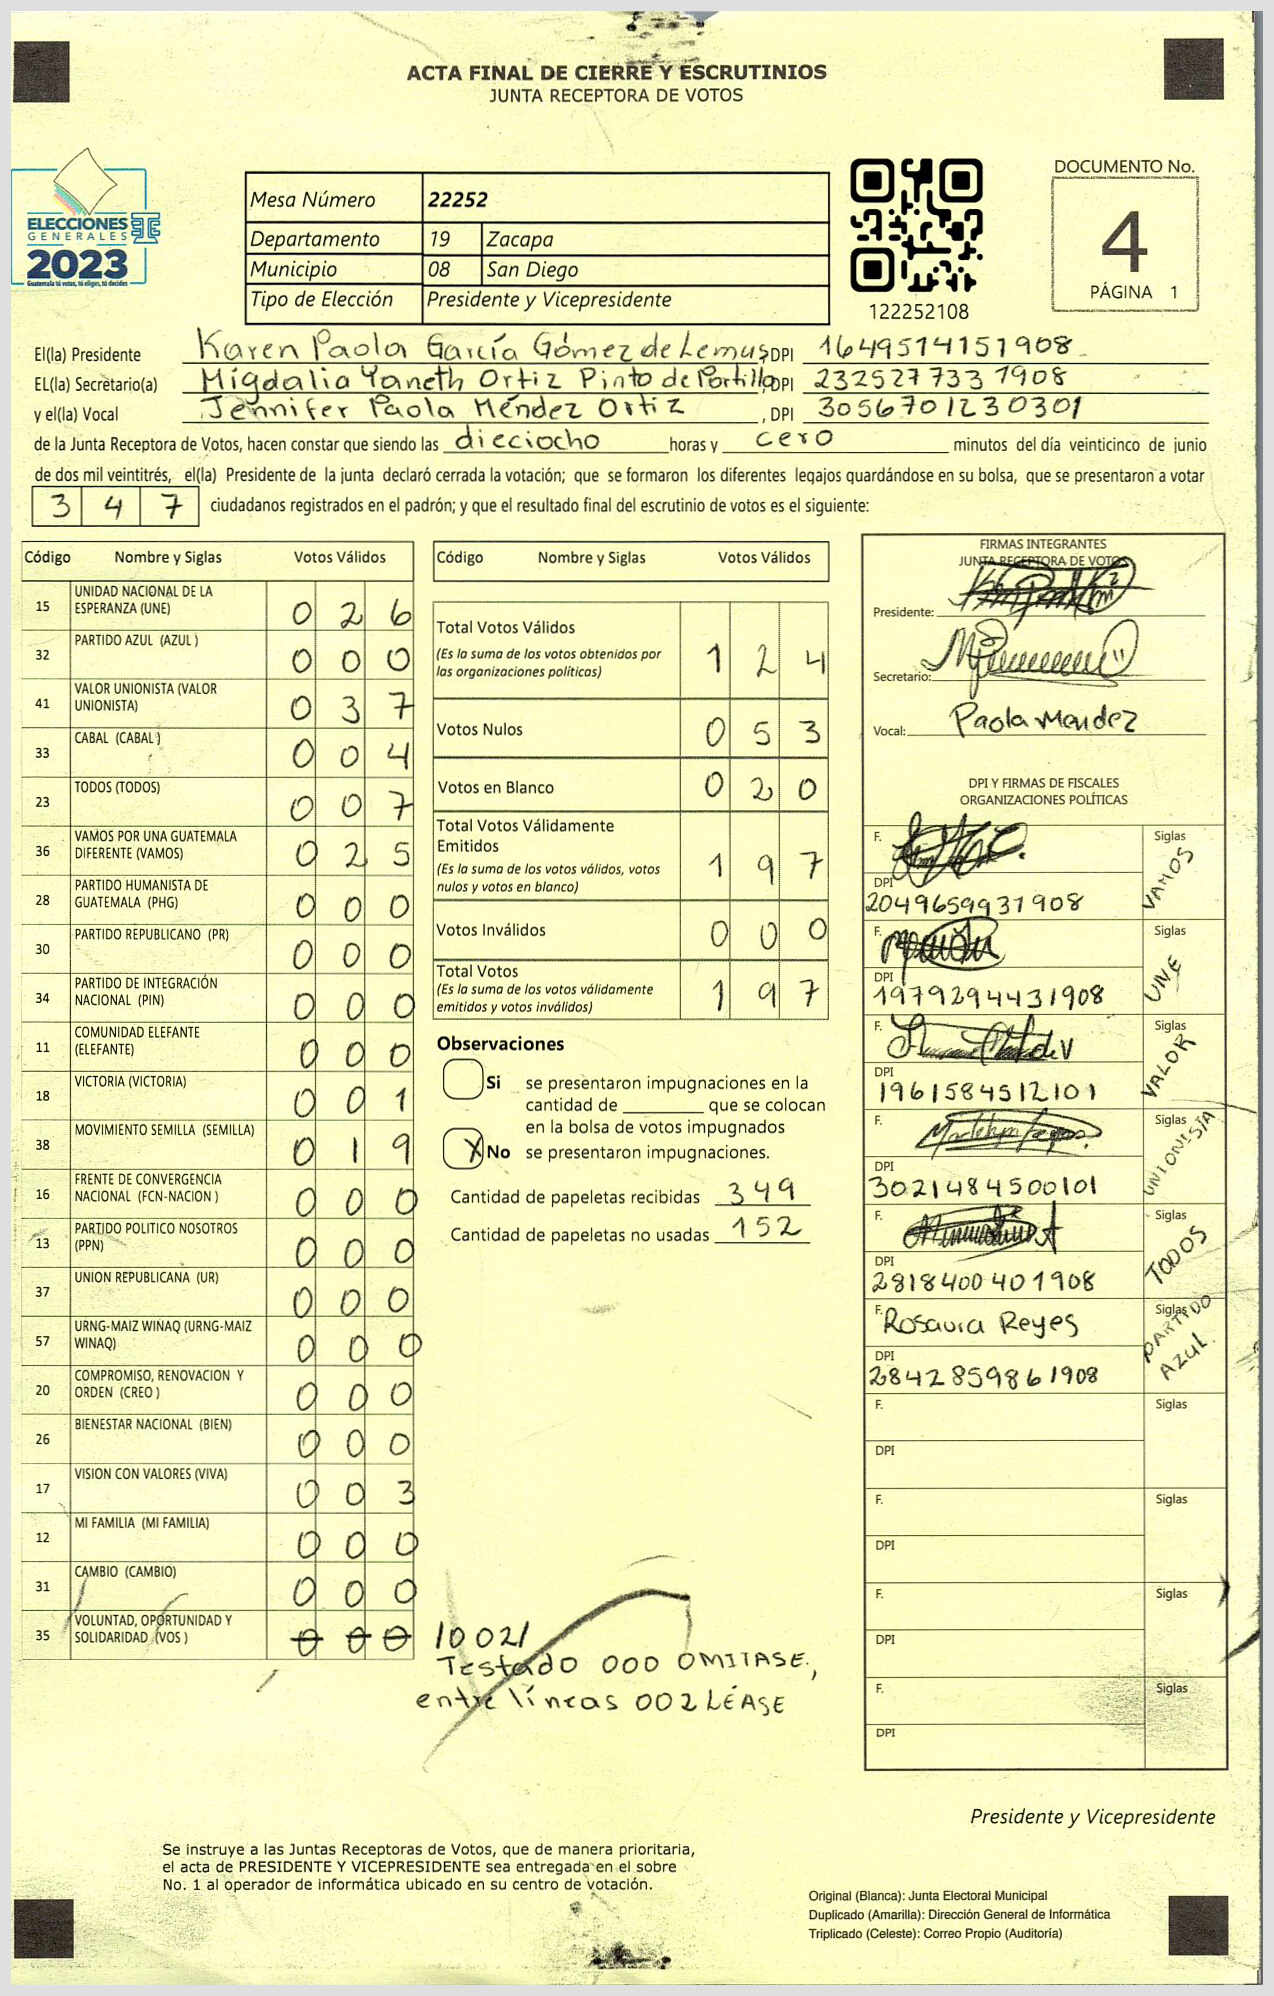 ACTA FINAL DE CIERRE Y ESCRUTINIOS
JUNTA RECEPTORA DE VOTOS
ELECCIONES
GENERALES
2023
Guatemala tú votas, tú eliges, tú decides
Mesa Número 22252
Departamento 19 Zacapa
Municipio 08 San Diego
Tipo de Elección Presidente y Vicepresidente
122252108
DOCUMENTO No.
4
PÁGINA 1
El(la) Presidente Karen Paola García Gómez de Lemus, DPI 1649514151908
EL(la) Secretario(a) Migdalia Yaneth Ortiz Pinto de Portillo, DPI 2325277331908
y el(la) Vocal Jennifer Paola Méndez Ortiz, DPI 3056701230301
de la Junta Receptora de Votos, hacen constar que siendo las dieciocho horas y cero minutos del día veinticinco de junio
de dos mil veintitrés, el(la) Presidente de la junta declaró cerrada la votación; que se formaron los diferentes legajos quardándose en su bolsa, que se presentaron a votar
3 4 7 ciudadanos registrados en el padrón; y que el resultado final del escrutinio de votos es el siguiente:
Código Nombre y Siglas Votos Válidos
15 UNIDAD NACIONAL DE LA ESPERANZA (UNE) 0 2 6
32 PARTIDO AZUL (AZUL ) 0 0 0
41 VALOR UNIONISTA (VALOR UNIONISTA) 0 3 7
33 CABAL (CABAL ) 0 0 4
23 TODOS (TODOS) 0 0 7
36 VAMOS POR UNA GUATEMALA DIFERENTE (VAMOS) 0 2 5
28 PARTIDO HUMANISTA DE GUATEMALA (PHG) 0 0 0
30 PARTIDO REPUBLICANO (PR) 0 0 0
34 PARTIDO DE INTEGRACIÓN NACIONAL (PIN) 0 0 0
11 COMUNIDAD ELEFANTE (ELEFANTE) 0 0 0
18 VICTORIA (VICTORIA) 0 0 1
38 MOVIMIENTO SEMILLA (SEMILLA) 0 1 9
16 FRENTE DE CONVERGENCIA NACIONAL (FCN-NACION ) 0 0 0
13 PARTIDO POLITICO NOSOTROS (PPN) 0 0 0
37 UNION REPUBLICANA (UR) 0 0 0
57 URNG-MAIZ WINAQ (URNG-MAIZ WINAQ) 0 0 0
20 COMPROMISO, RENOVACION Y ORDEN (CREO ) 0 0 0
26 BIENESTAR NACIONAL (BIEN) 0 0 0
17 VISION CON VALORES (VIVA) 0 0 3
12 MI FAMILIA (MI FAMILIA) 0 0 0
31 CAMBIO (CAMBIO) 0 0 0
35 VOLUNTAD, OPORTUNIDAD Y SOLIDARIDAD (VOS ) 0 0 0 /002/
Testado 000 OMITASE,
entre líneas 002 LÉASE
Código Nombre y Siglas Votos Válidos
Total Votos Válidos
(Es la suma de los votos obtenidos por
las organizaciones políticas) 1 2 4
Votos Nulos 0 5 3
Votos en Blanco 0 2 0
Total Votos Válidamente
Emitidos
(Es la suma de los votos válidos, votos
nulos y votos en blanco) 1 9 7
Votos Inválidos 0 0 0
Total Votos
(Es la suma de los votos válidamente
emitidos y votos inválidos) 1 9 7
Observaciones
Si se presentaron impugnaciones en la
cantidad de ________ que se colocan
en la bolsa de votos impugnados
X No se presentaron impugnaciones.
Cantidad de papeletas recibidas 349
Cantidad de papeletas no usadas 152
FIRMAS INTEGRANTES
JUNTA RECEPTORA DE VOTOS
Presidente:
Secretario:
Vocal: Paola Mendez
DPI Y FIRMAS DE FISCALES
ORGANIZACIONES POLÍTICAS
F. Siglas VAMOS
DPI 2049659931908
F. Siglas UNE
DPI 1979294431908
F. Siglas VALOR
DPI 1961584512101
F. Siglas UNIONISTA
DPI 3021484500101
F. Siglas TODOS
DPI 2818400401908
F. Rosaura Reyes Siglas PARTIDO AZUL
DPI 2842859861908
F. Siglas
DPI
F. Siglas
DPI
F. Siglas
DPI
F. Siglas
DPI
Presidente y Vicepresidente
Se instruye a las Juntas Receptoras de Votos, que de manera prioritaria,
el acta de PRESIDENTE Y VICEPRESIDENTE sea entregada en el sobre
No. 1 al operador de informática ubicado en su centro de votación.
Original (Blanca): Junta Electoral Municipal
Duplicado (Amarilla): Dirección General de Informática
Triplicado (Celeste): Correo Propio (Auditoría)